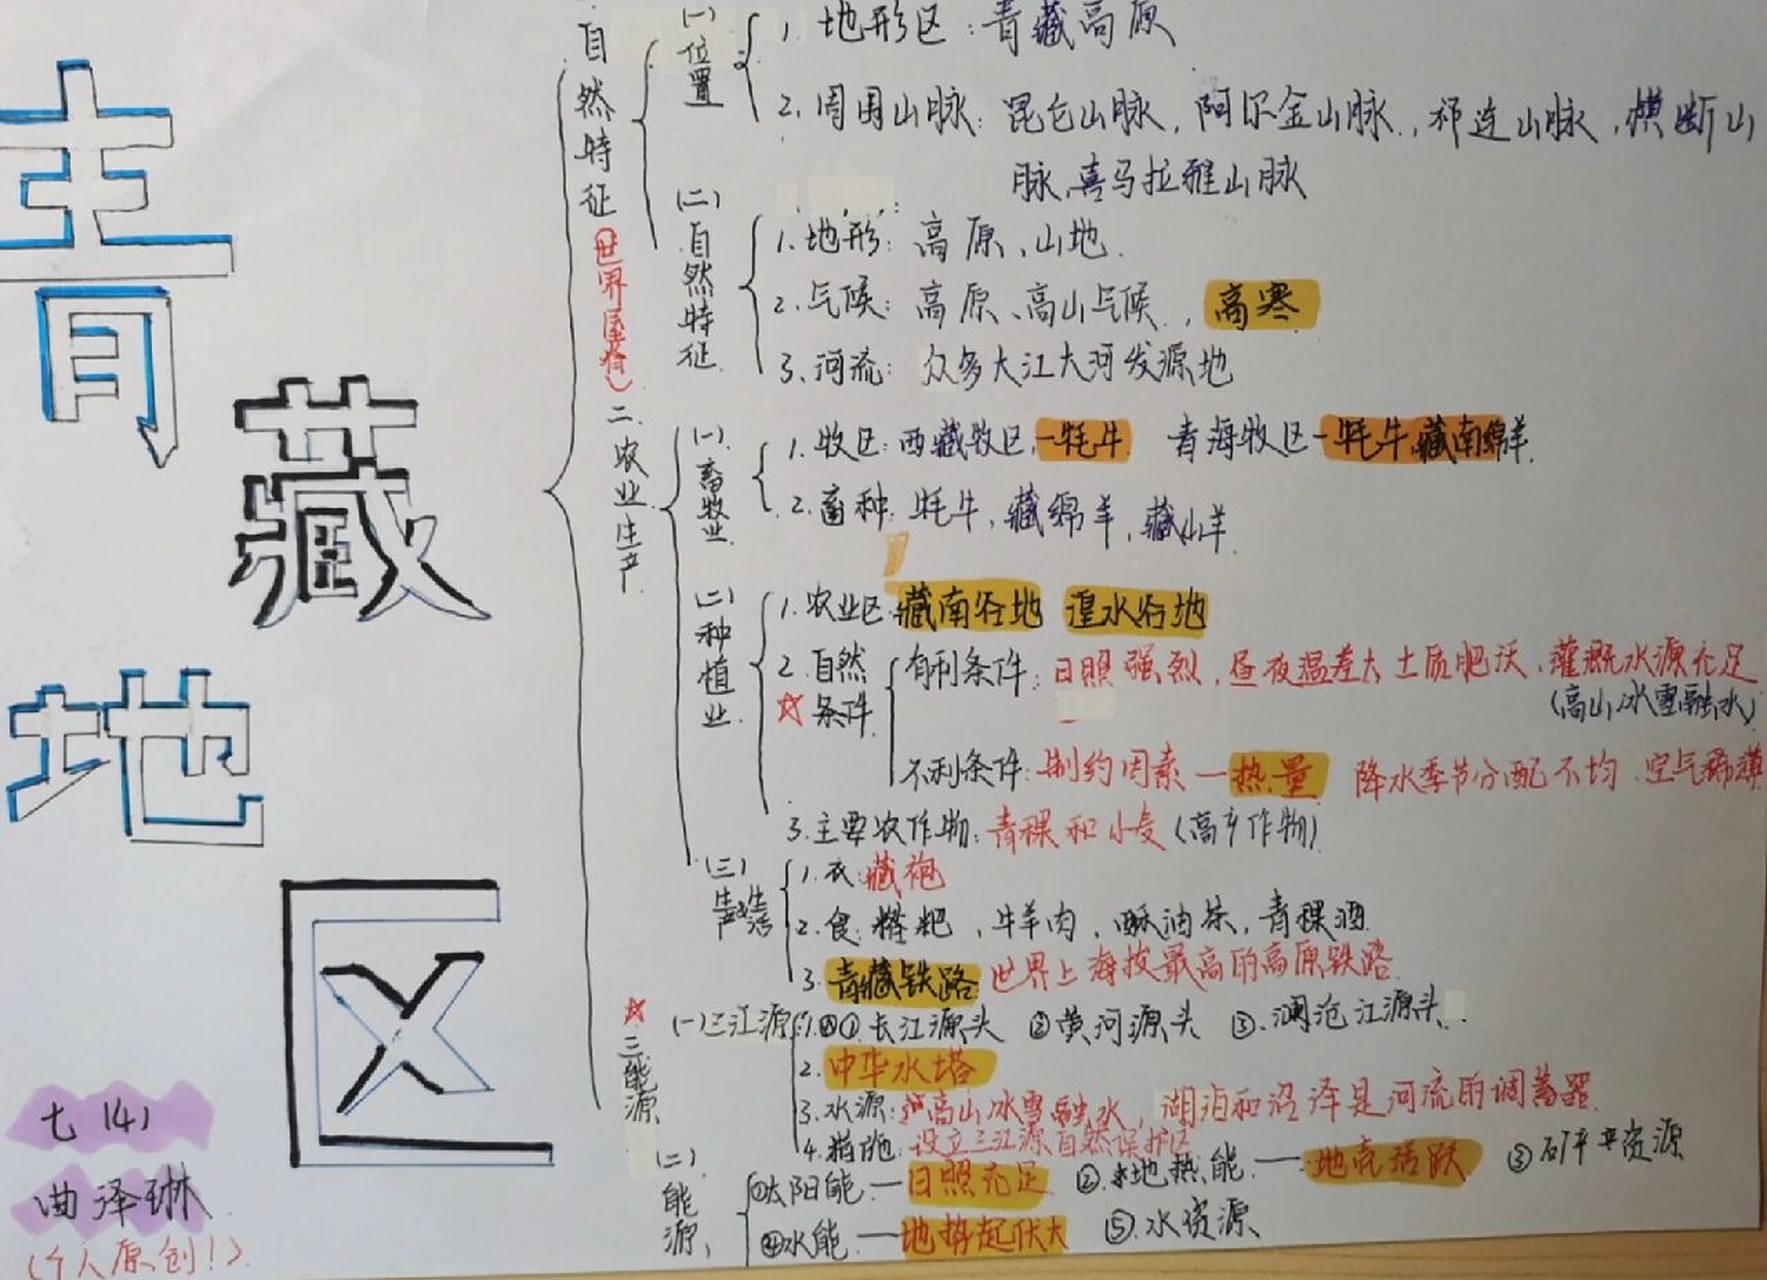 青
藏
地
区
七(4)
曲泽琳
(个人原创!)
自然特征(世界屋脊)
(一)位置
1. 地形区:青藏高原
2. 周围山脉:昆仑山脉,阿尔金山脉,祁连山脉,横断山
脉、喜马拉雅山脉
(二)自然特征
1.地形:高原、山地.
2.气候:高原、高山气候,高寒
3.河流:众多大江大河发源地
二.农业生产
(一)畜牧业
1.牧区:西藏牧区—牦牛 青海牧区—牦牛,藏南绵羊.
2.畜种:牦牛,藏绵羊,藏山羊
(二)种植业
1.农业区:藏南谷地 湟水谷地
2.自然☆条件
有利条件:日照强烈,昼夜温差大 土质肥沃、灌溉水源充足
(高山冰雪融水)
不利条件:制约因素—热量 降水季节分配不均.空气稀薄
3.主要农作物:青稞和小麦(高产作物)
(三)生产生活
1.衣:藏袍
2.食:糌粑、牛羊肉、酥油茶,青稞酒
3.青藏铁路:世界上海拔最高的高原铁路
☆三.能源
(一)三江源
1.①长江源头 ②黄河源头 ③.澜沧江源头
2.中华水塔
3.水源:高山冰雪融水,湖泊和沼泽是河流的调蓄器
4.措施:设立三江源自然保护区
(二)能源
①太阳能—日照充足 ②.地热能—地壳活跃 ③矿产资源
④水能—地势起伏大 ⑤.水资源